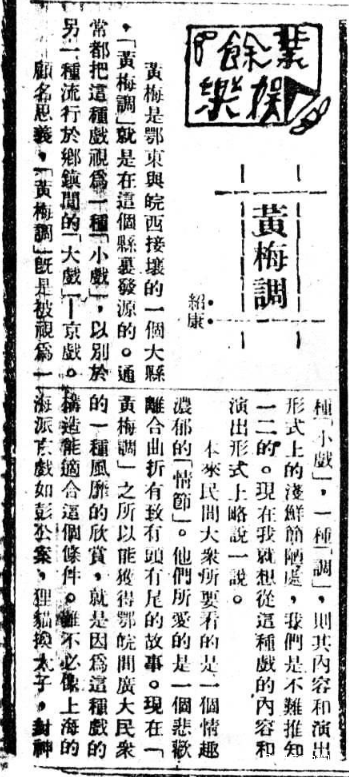 業餘娛樂
黃梅調
紹康
黃梅是鄂東與皖西接壤的一個大縣
，「黃梅調」就是在這個縣裏發源的。通
常都把這種戲視爲一種「小戲」，以別於
另一種流行於鄉鎮間的「大戲」—京戲。
顧名思義，「黃梅調」旣是被視爲一
種「小戲」，一種「調」，則其內容和演出
形式上的淺鮮簡陋處，我們是不難推知
一二的。現在我就想從這種戲的內容和
演出形式上略說一說。
本來民間大衆所要看的是一個情趣
濃郁的「情節」。他們所愛的是一個悲歡
離合曲折有致有頭有尾的故事。現在「
黃梅調」之所以能獲得鄂皖間廣大民衆
的一種風靡的欣賞，就是因爲這種戲的
構造能適合這個條件。雖不必像上海的
海派京戲如彭公案，狸貓換太子，封神